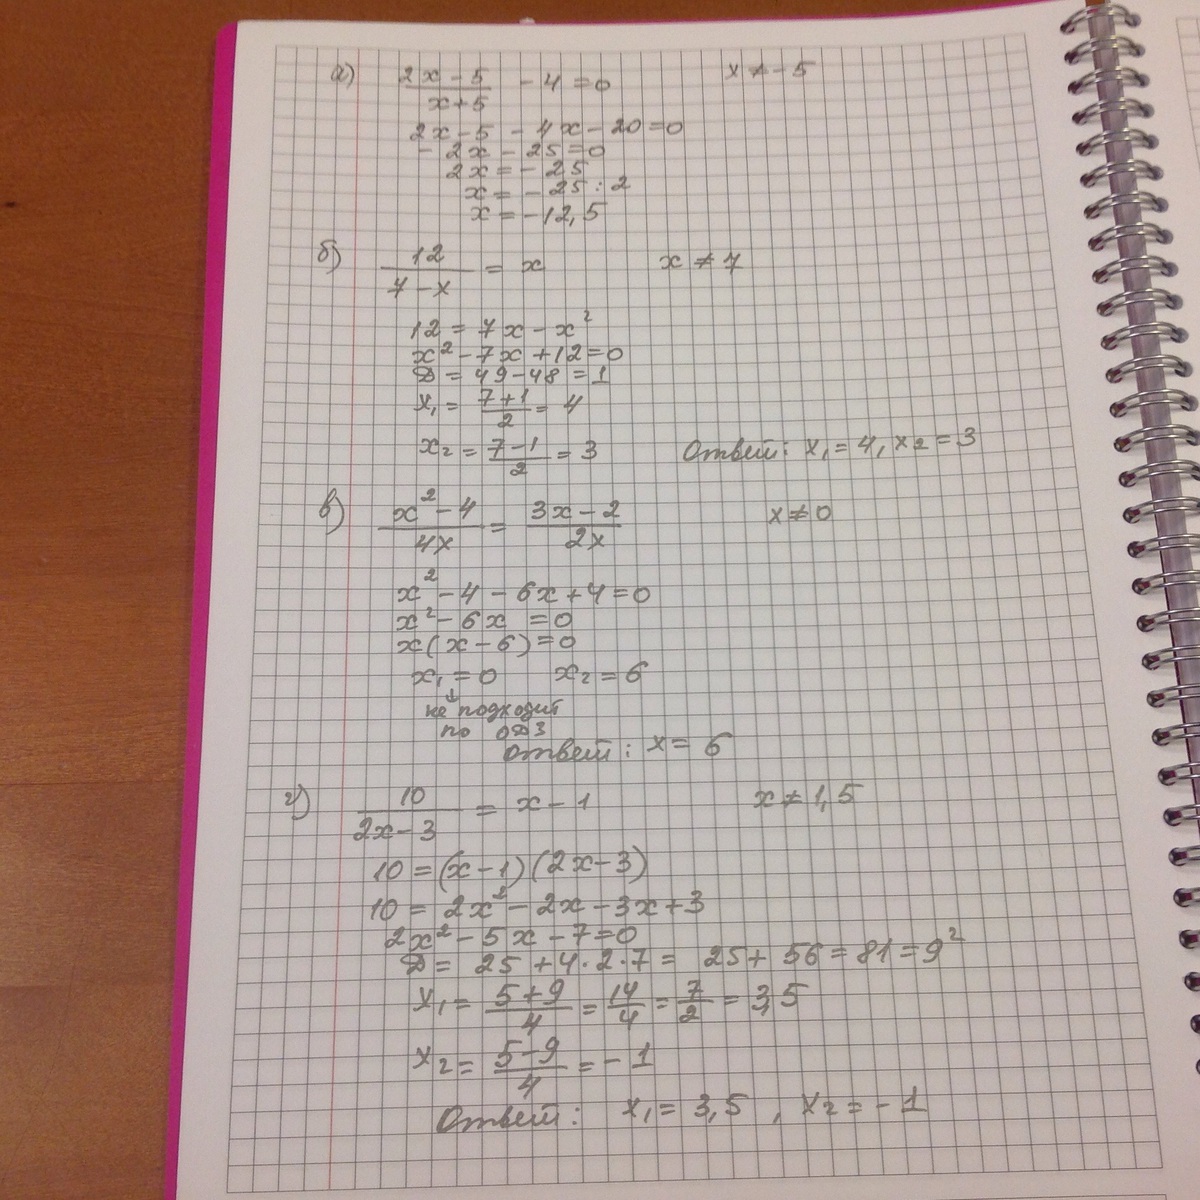 а) (2x-5)/(x+5) - 4 = 0 x ≠ -5
2x-5 - 4x-20=0
-2x-25=0
2x=-25
x=-25:2
x=-12,5
б) 12/(7-x) = x x ≠ 7
12 = 7x-x²
x²-7x+12=0
D = 49-48 = 1
x₁ = (7+1)/2 = 4
x₂ = (7-1)/2 = 3 Ответ: x₁=4, x₂=3
в) (x²-4)/4x = (3x-2)/2x x≠0
x²-4-6x+4=0
x²-6x =0
x(x-6)=0
x₁=0 x₂=6
↓
не подходит
по ОДЗ
Ответ: x=6
г) 10/(2x-3) = x-1 x≠1,5
10=(x-1)(2x-3)
10= 2x²-2x-3x+3
2x²-5x-7=0
D= 25+4·2·7= 25+56=81=9²
x₁= (5+9)/4 = 14/4 = 7/2 = 3,5
x₂= (5-9)/4 = -1
Ответ: x₁=3,5 , x₂=-1